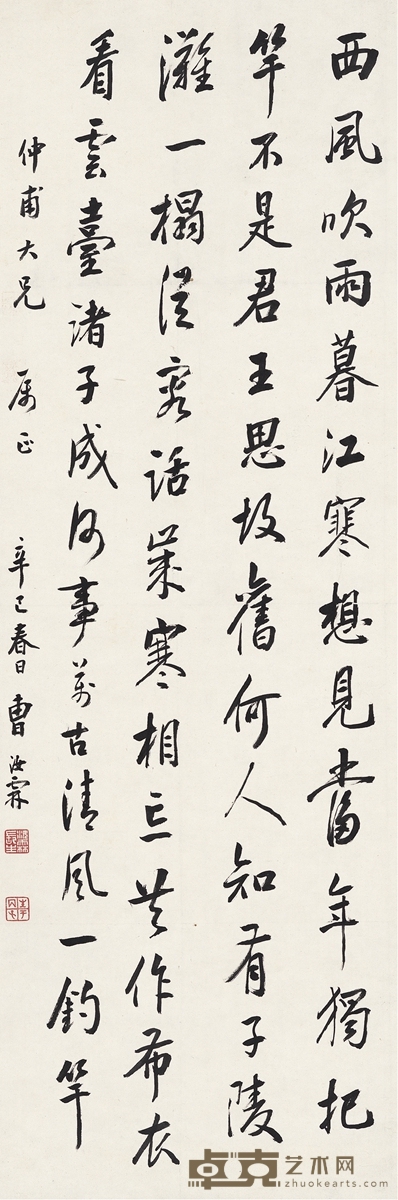 西風吹雨暮江寒想見當年獨把
竿不是君王思故舊何人知有子陵
灘一榻從容話歲寒相忘共作布衣
看雲臺諸子成何事萬古清風一釣竿
仲甫大兄 属正 辛巳春日曹汝霖
卓克艺术网
zhuokearts.com